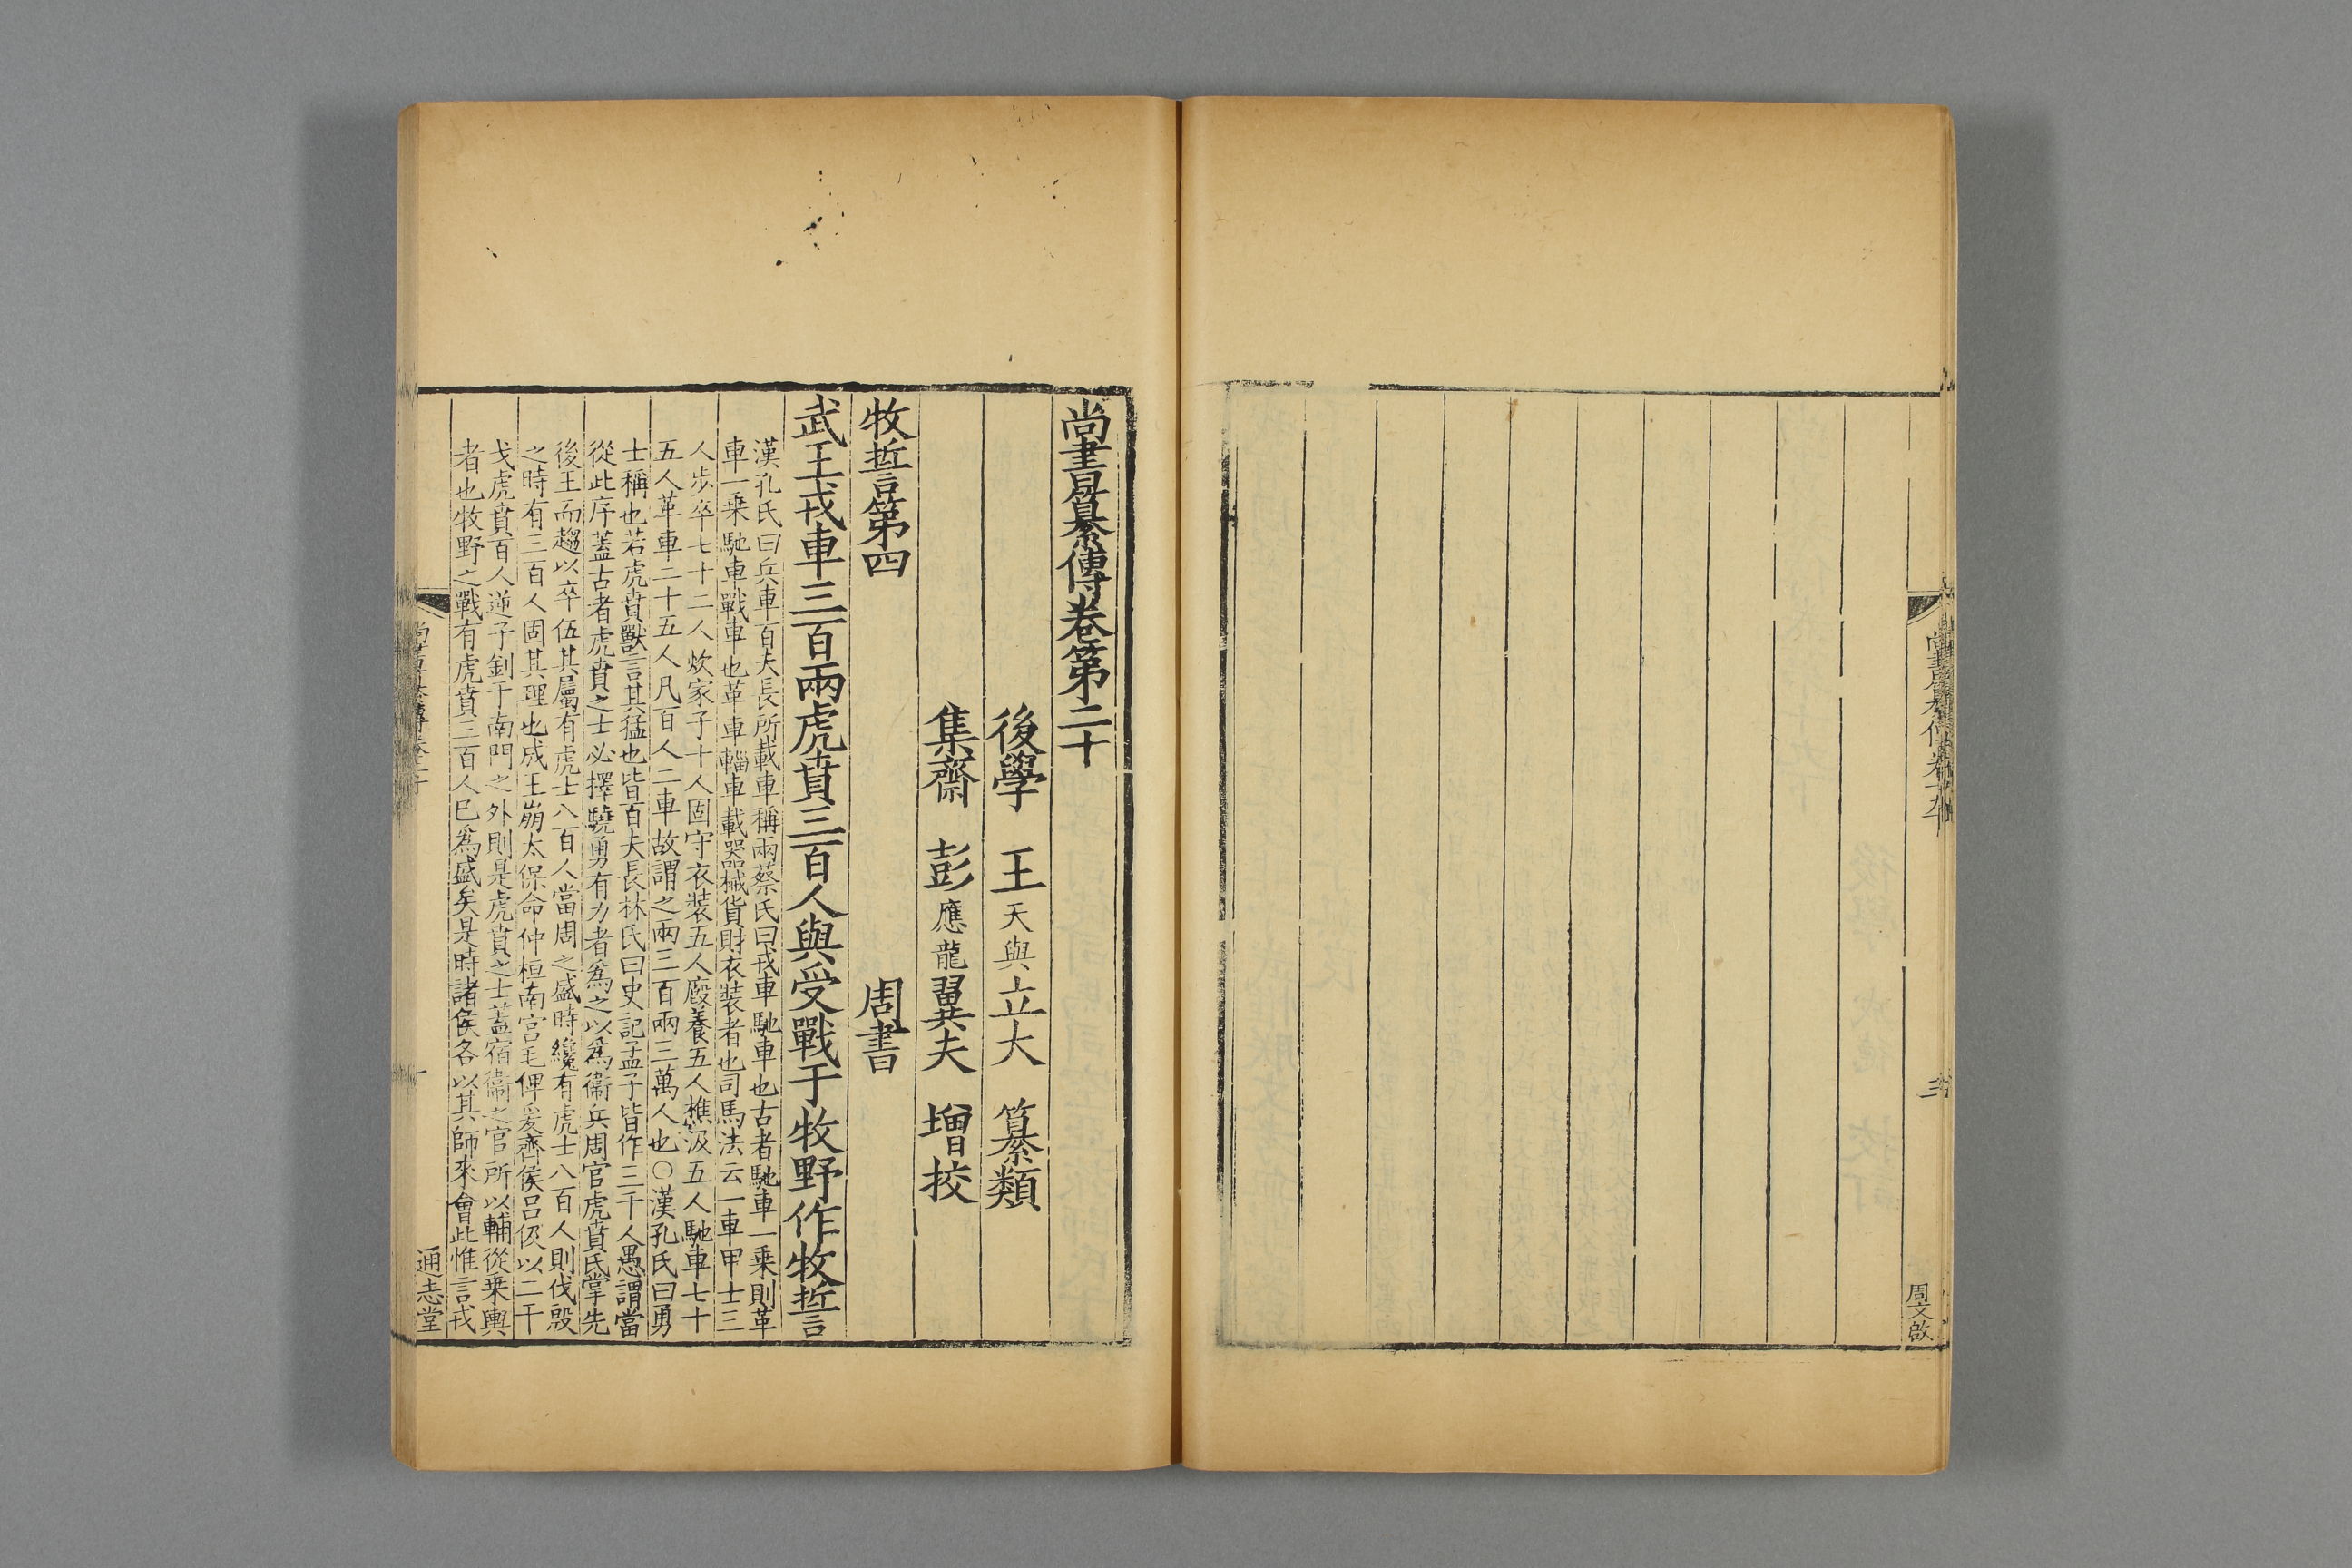 周文啟
尚書纂傳卷第二十
後學　王天與立大　纂類
集齋　彭應龍翼夫　增挍
牧誓第四　周書
武王戎車三百兩虎賁三百人與受戰于牧野作牧誓
漢孔氏曰兵車百夫長所載車稱兩蔡氏曰戎車馳車也古者馳車一乗則革
車一乗馳車戰車也革車輜車載器械貨財衣裝者也司馬法云一車甲士三
人步卒七十二人炊家子十人固守衣裝五人廏養五人樵汲五人馳車七十
五人革車二十五人凡百人二車故謂之兩三百兩三萬人也○漢孔氏曰勇
士稱也若虎賁獸言其猛也皆百夫長林氏曰史記孟子皆作三千人愚謂當
從此序蓋古者虎賁之士必擇驍勇有力者爲之以爲衞兵周官虎賁氏掌先
後王而趨以卒伍其屬有虎士八百人當周之盛時纔有虎士八百人則伐殷
之時有三百人固其理也成王崩太保命仲桓南宫毛俾爰齊侯吕伋以二干
戈虎賁百人逆子釗于南門之外則是虎賁之士蓋宿衞之官所以輔從乗輿
者也牧野之戰有虎賁三百人已爲盛矣是時諸侯各以其師來會此惟言戎
通志堂